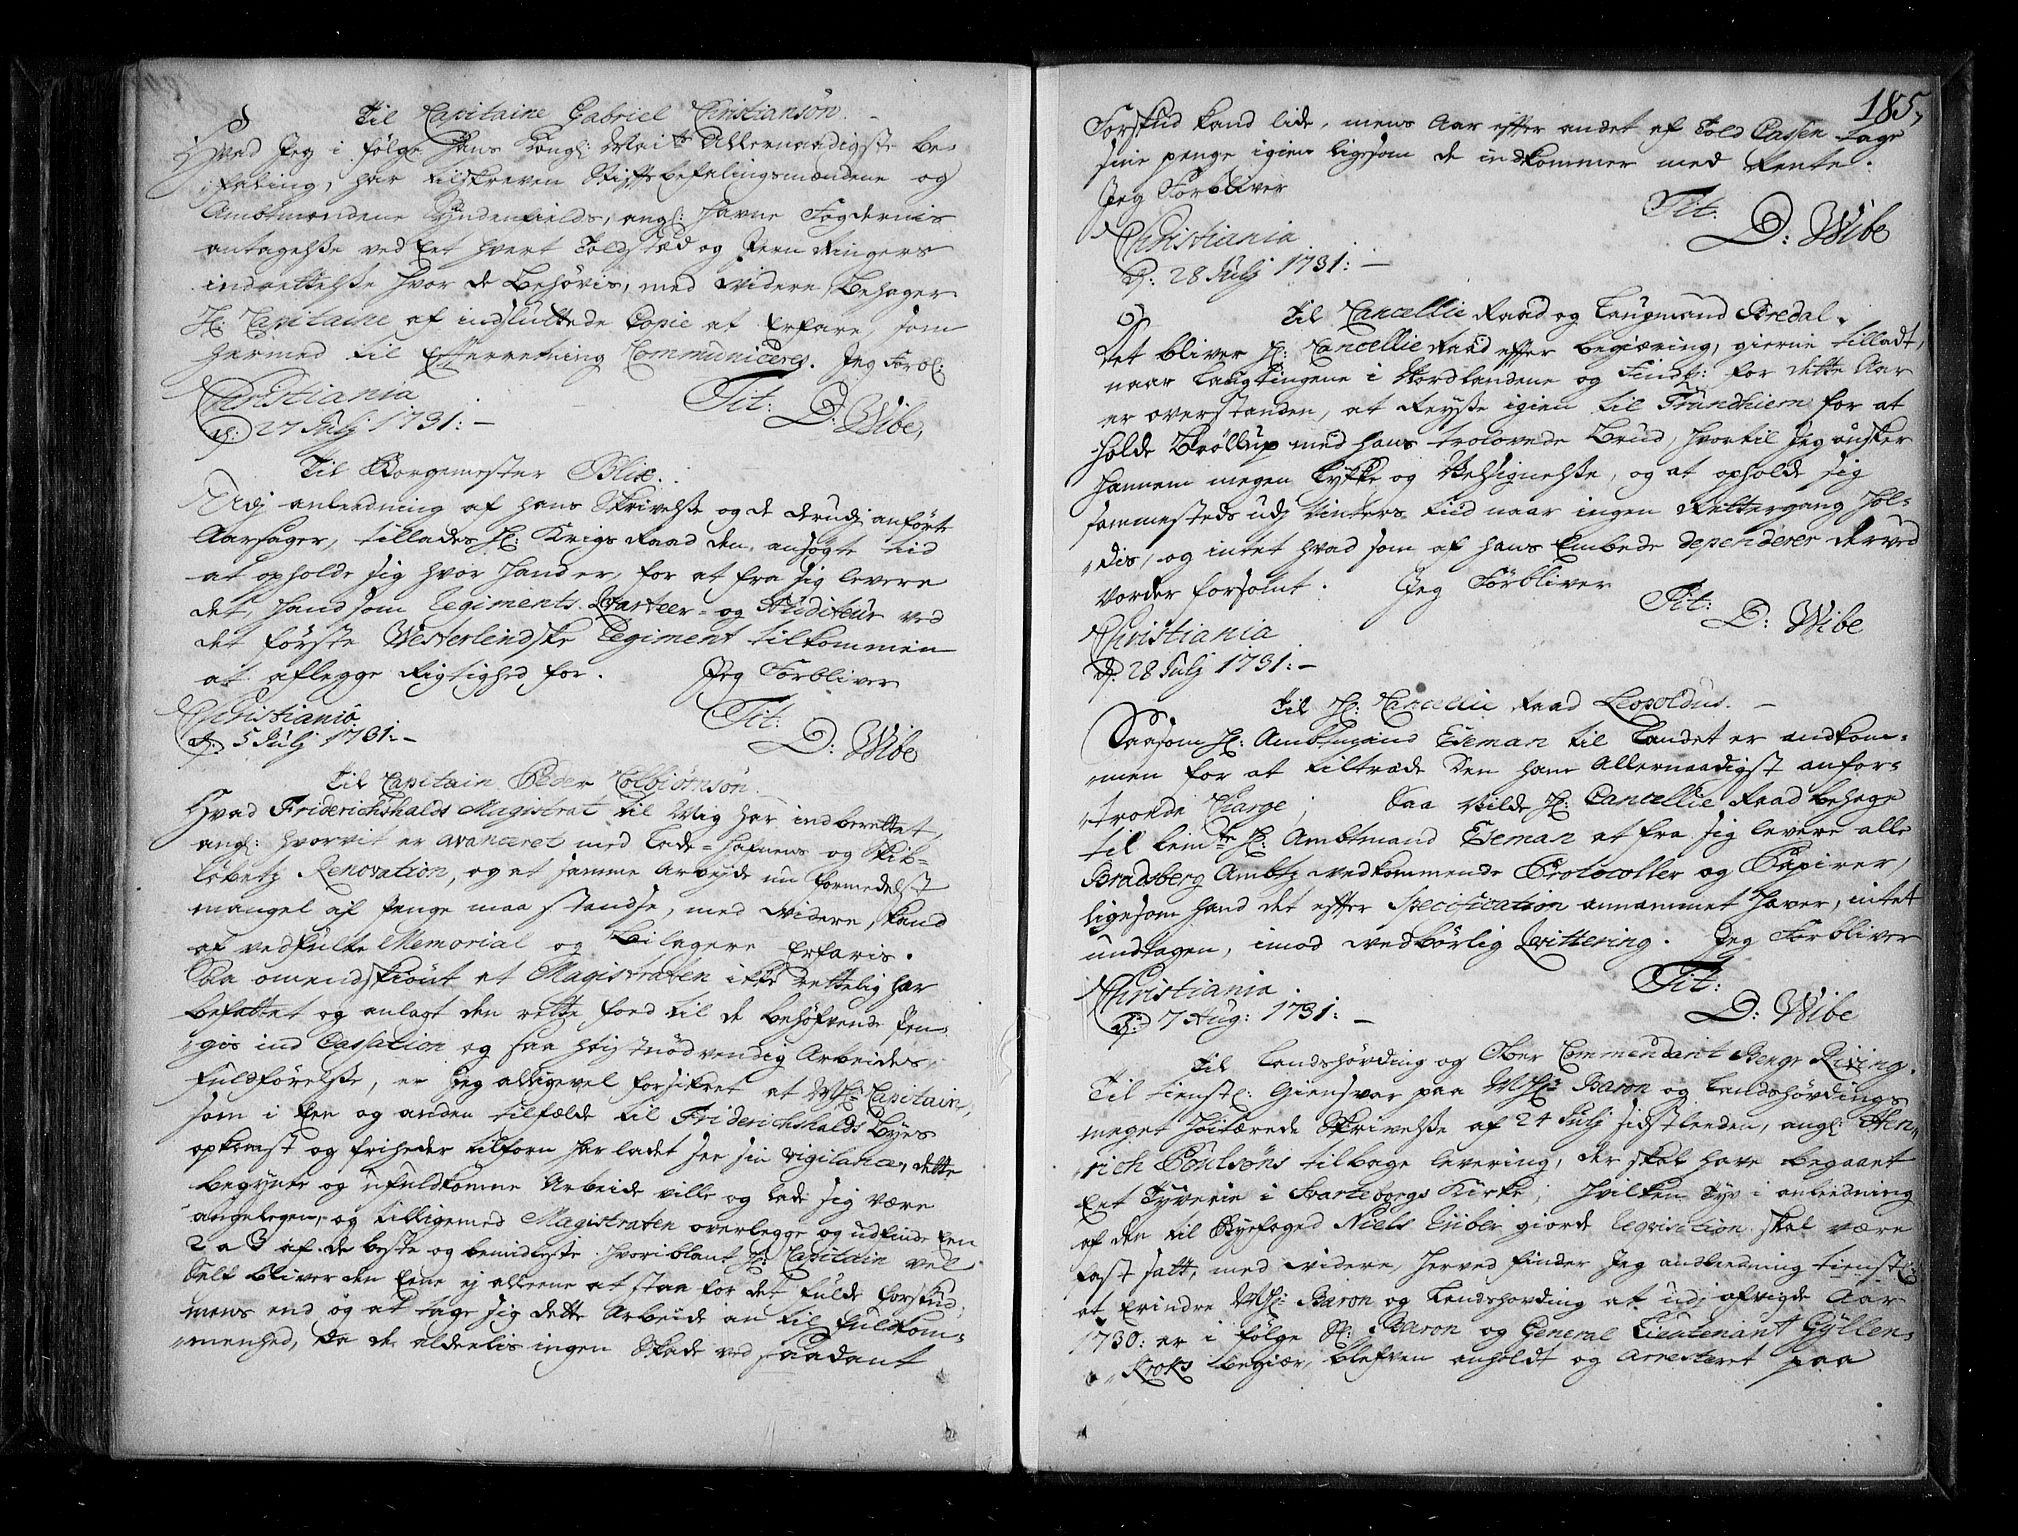 Til Capitaine Gabriel Christiansøn.
Hvad Jeg i følge Hans Kongl: Maits Allernaadigste be-
faling, har tilskreven Stiftsbefalingsmændene og
Ambtmændene Syndenfields, angl: Havne Fogdernis
antagelsse ved Eet hvert Toldstæd og Jern Ringers
indrettelsse hvor de behøvis, med videre, behager
Hr: Capitaine af indsluttede Copie at Erfare, som
hermed til Efterretning Communiceres. Jeg Forbl:
Christiania
d: 27 Julj 1731:
Tit: D: Wibe,
Til Borgemester Blix.
Udj anledning af hans Skrivelsse og de derudj anførte
Aarsager, tillades Hr: Krigs Raad den ansøgte tid
at opholde sig hvor hand er, for at fra sig levere
det, hand som Regiments Qvarteer- og Auditeur ved
det første Westerlendske Regiment tilkommen
at aflegge Rigtighed for. Jeg Forbliver
Christiania
d: 5 Julj 1731:
Tit:
D: Wibe
Til Capitain Peder Colbiønsøn.
Hvad Friderichshalds Magistrat til Mig har indberettet,
angl: hvorvit er avanceret med Lade-Hafnens og Skib-
løbetz Renovation, og at samme Arbeyde nu formedelst
mangel af Penge maa standse, med videre, kand
af vedfulte Memorial og Bilagere Erfaris.
Saa omendskiønt at Magistraten ikke rettelig har
befattet og anlagt den rette foed til de behøfvende Pen-
gis ind Cassation og saa høyst nødvendig Arbeides
fuldførelsse, er Jeg alligevel forsikret at Mhr: Capitain,
som i Een og anden tilfælde til Friderichshalds Byes
opkomst og friheder tilforn har ladet see sin vigilance, dette
begynte og ufuldkomne Arbeide ville og lade sig være
angelegen, og tilligemed Magistraten overlegge og udfinde Een
2 a 3 af de beste og bemidleste, hvoriblant Hr: Capitain vel
Self bliver den Eene ej alleene at staa for det fulde forskud,
mens end og at tage sig dette Arbeide an til fuldkom-
menhed, da de alderlis ingen Skade ved saadant
185,
Forskud kand lide, mens Aar efter andet af Told Cassen tage
sine penge igien ligesom de indkommer med Rente.
Jeg Forbliver
Tit.
D: Wibe
Christiania
d: 28 Julj 1731:
Til Cancellie Raad og Laugmand Bredal.
Det bliver Hr: Cancellie Raad efter begiæring, gierne tilladt,
naar Laugtingene i Nordlandene og Findm: for dette Aar
er overstanden, at Reysse igien til Trundhiem for at
holde Brøllup med hans trolovede Brud, hvortil Jeg ønsker
Hannem megen Lykke og Velsignelsse, og at opholde sig
sammesteds udj Vinters tiid naar ingen Rettergang hol-
dis, og intet hvad som af hans Embede dependerer derved
vorder forsømt. Jeg Forbliver
Tit:
D: Wibe
Christiania
d: 28 Julj 1731:
Til Hr: Cancellie Raad Leopoldus.
Saasom Hr: Ambtmand Eseman til Landet er ankom-
men for at tiltræde Den ham Allernaadigst anfor-
troede Charge; Saa vilde Hr: Cancellie Raad behage
til bemte Hr: Ambtmand Eseman at fra sig levere alle
Bradsberg Ambtz vedkommende Protocoller og Papirer,
ligesom hand det efter Specification annammet Haver, intet
undtagen, imod vedbørlig Qvittering. Jeg Forbliver
Tit:
D: Wibe
Christiania
d: 7 Aug: 1731:
Til Landshøvding og Ober Commendant Bengt Ribing.
Til tienstl: Giensvar paa Mhr: Baron og Landshøvdings
meget Høitærede Skrivelsse af 24 Julj sidstleeden, angl: Hen-
rich Poulsøns tilbage levering, der skal have begaaet
Eet Tyverie i Svarteborgs Kirke, hvilken Tyv i anledning
af den til Byefoged Niels giorde reqvisition skal være
fast satt, med videre, herved finder Jeg anledning tienstl:
at Erindre Mhr: Baron og Landshøvding at udj afvigte Aar
1730: er i følge Hr: Baron og General Lieutenant Gyllen-
Kroks begiær, blefven anholdt og Arresteret paa